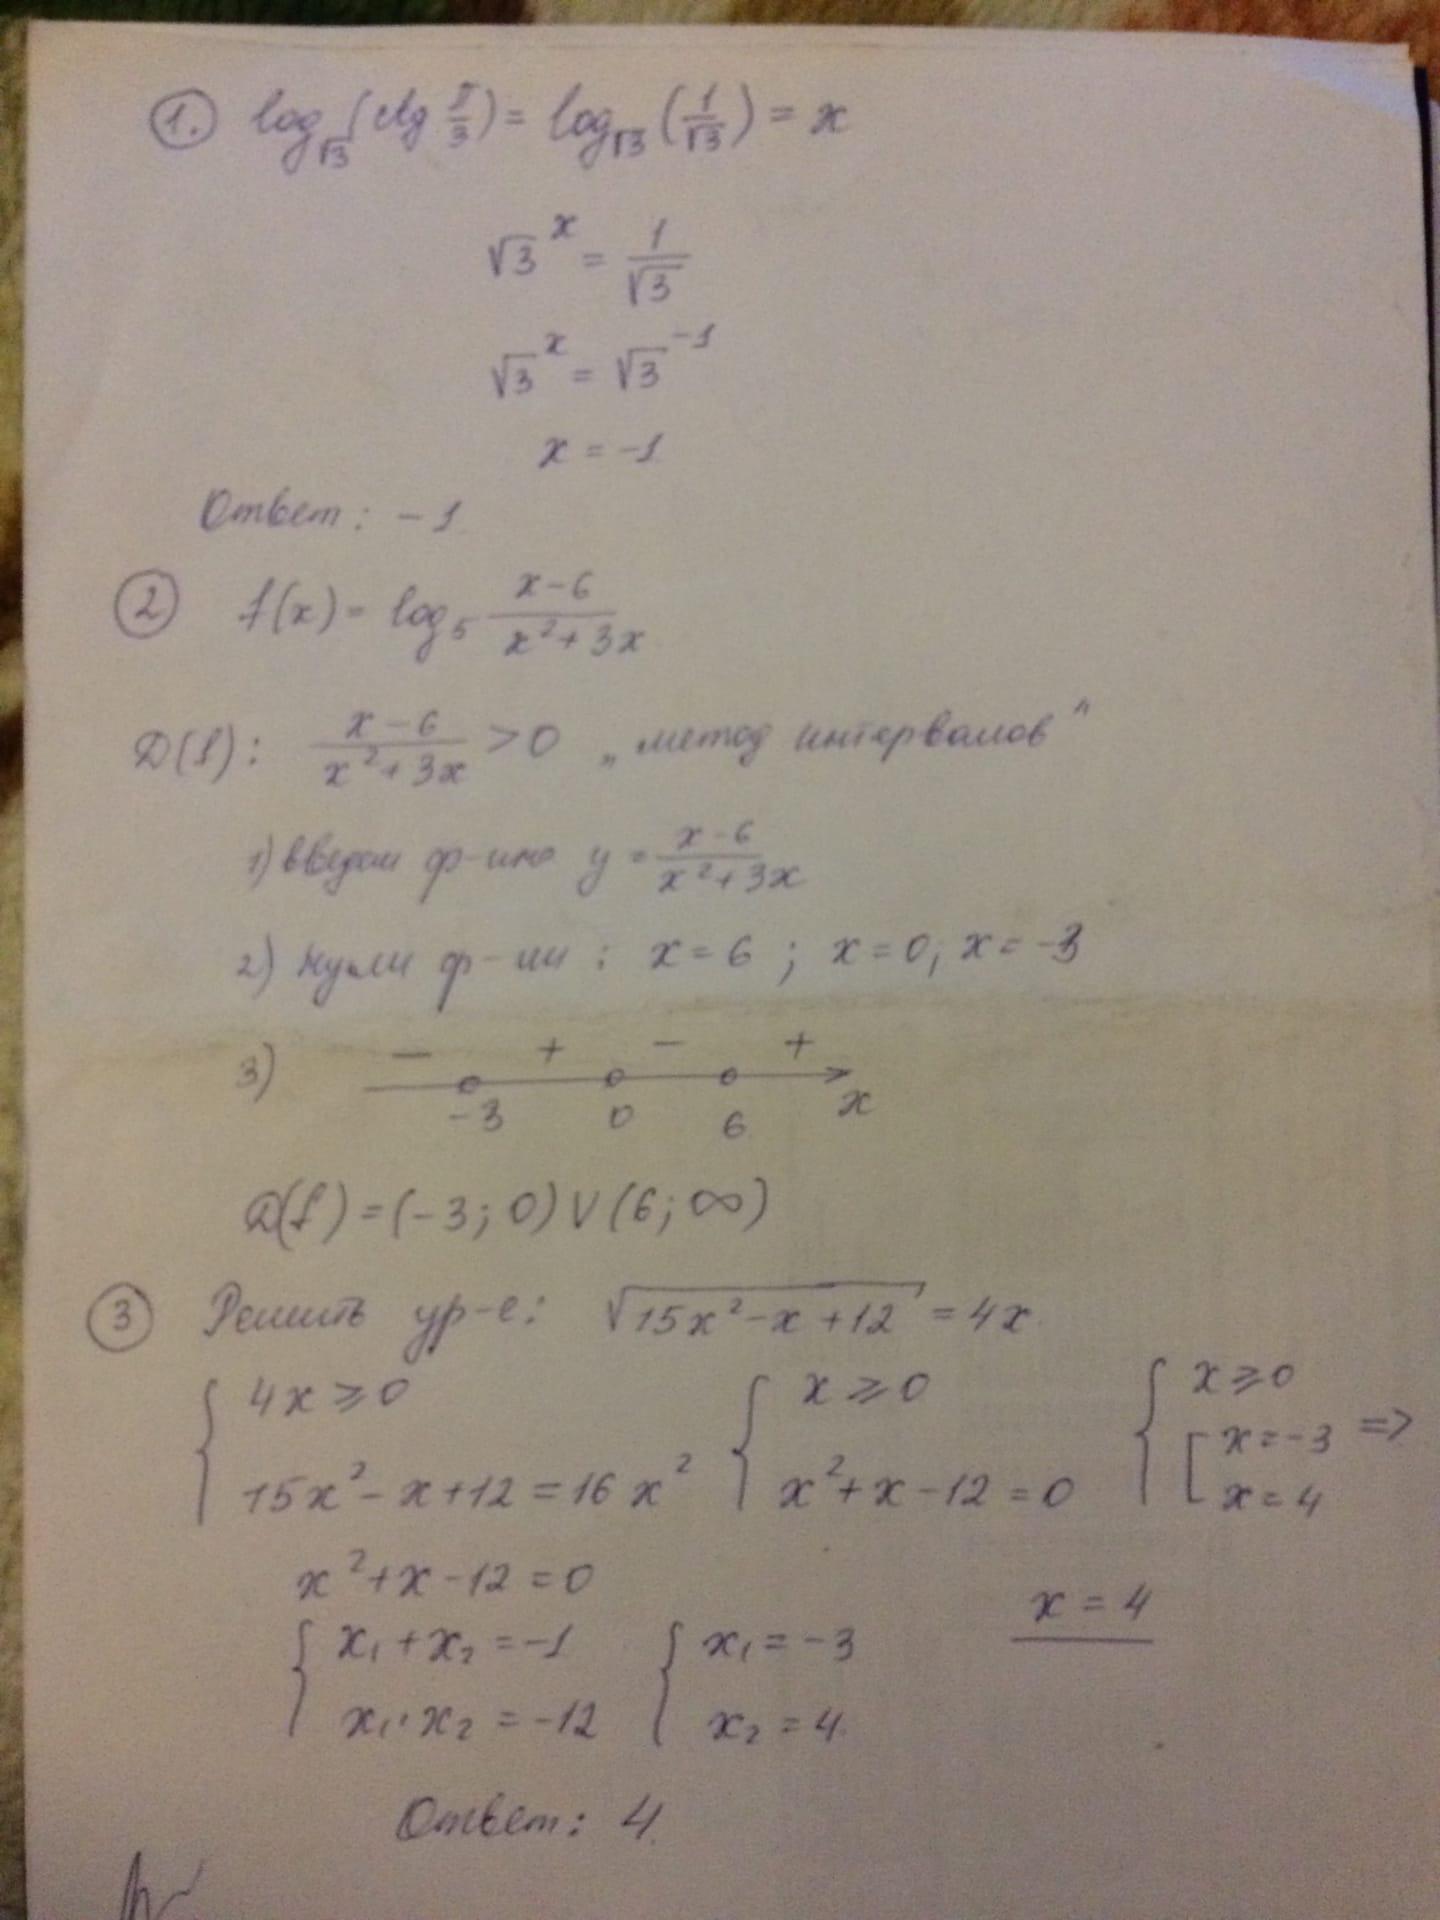 1. log_√3 (ctg π/3) = log_√3 (1/√3) = x
√3^x = 1/√3
√3^x = √3^-1
x = -1
Ответ: -1.
2 f(x) = log_5 (x-6)/(x²+3x)
D(f): (x-6)/(x²+3x) > 0 „метод интервалов"
1) введем ф-ию y = (x-6)/(x²+3x)
2) нули ф-ии: x = 6; x = 0; x = -3
3) - + - +
-3 0 6 x
D(f) = (-3; 0) ∪ (6; ∞)
3 Решить ур-е: √(15x²-x+12) = 4x
{ 4x ≥ 0 { x ≥ 0 { x ≥ 0
15x² - x + 12 = 16x² x² + x - 12 = 0 [ x = -3 =>
x = 4
x² + x - 12 = 0
x = 4
{ x₁ + x₂ = -1 { x₁ = -3
x₁ · x₂ = -12 x₂ = 4
Ответ: 4.